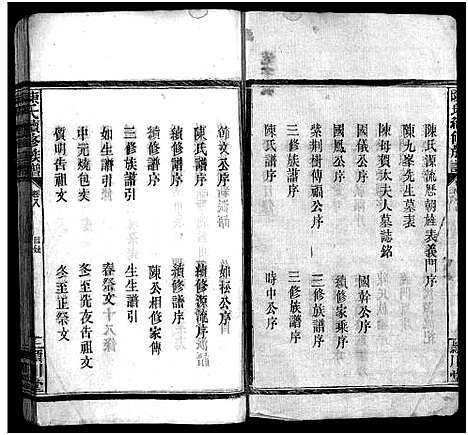 陳氏續修族譜
陳氏源流歷朝姓表義門序
陳九峯先生墓表
陳母賀太夫人墓誌銘
國儀公序
國幹公序
國鳳公序
續修家乘序
紫荆樹傳福公序
三修族譜序
三修族譜序
三修族譜序
時中公序
師文公序
陳氏譜序
續修源流序
續修譜序
續修譜序
續修譜序
陳公相修家傳
三修族譜引
生生譜序
如生譜引
春祭文十八條
中元燒包文
冬至先夜告祖文
質明告祖文
冬至正祭文
陳氏續修族譜
卷八
目錄
潁川堂